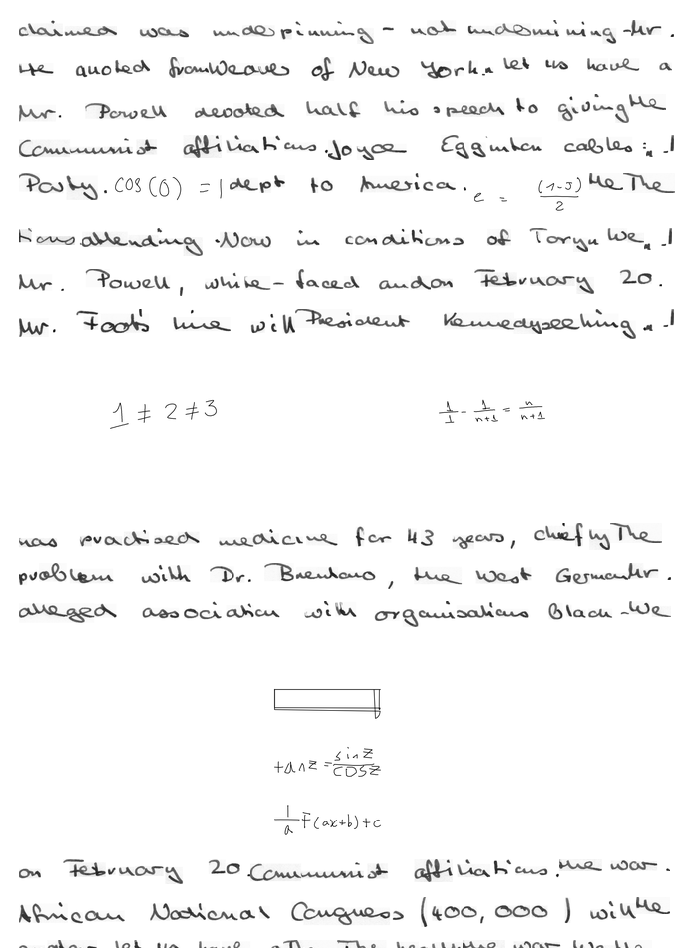 claimed was underpinning - not undermining - Mr.
He quoted from Weaver of New York. " let us have a
Mr. Powell devoted half his speech to giving the
Communist affiliations. Joyce Egginton cables : "
Party. cos(0) = 1 dept to America. e = (1-5)/2 He The
tions attending . Now in conditions of Tory " We "
Mr. Powell, white - faced and on February 20.
Mr. Foot's line will President Kennedy seeking "
1 ≠ 2 ≠ 3
1/1 - 1/(n+1) = n/(n+1)
has practised medicine for 43 years, chiefly The
problem with Dr. Brentano, the West German Mr.
alleged association with organisations black - We
tan z = sin z / cos z
1/a F(ax+b)+c
on February 20. Communist affiliations. the war.
African National Congress (400,000) will the
let us have The